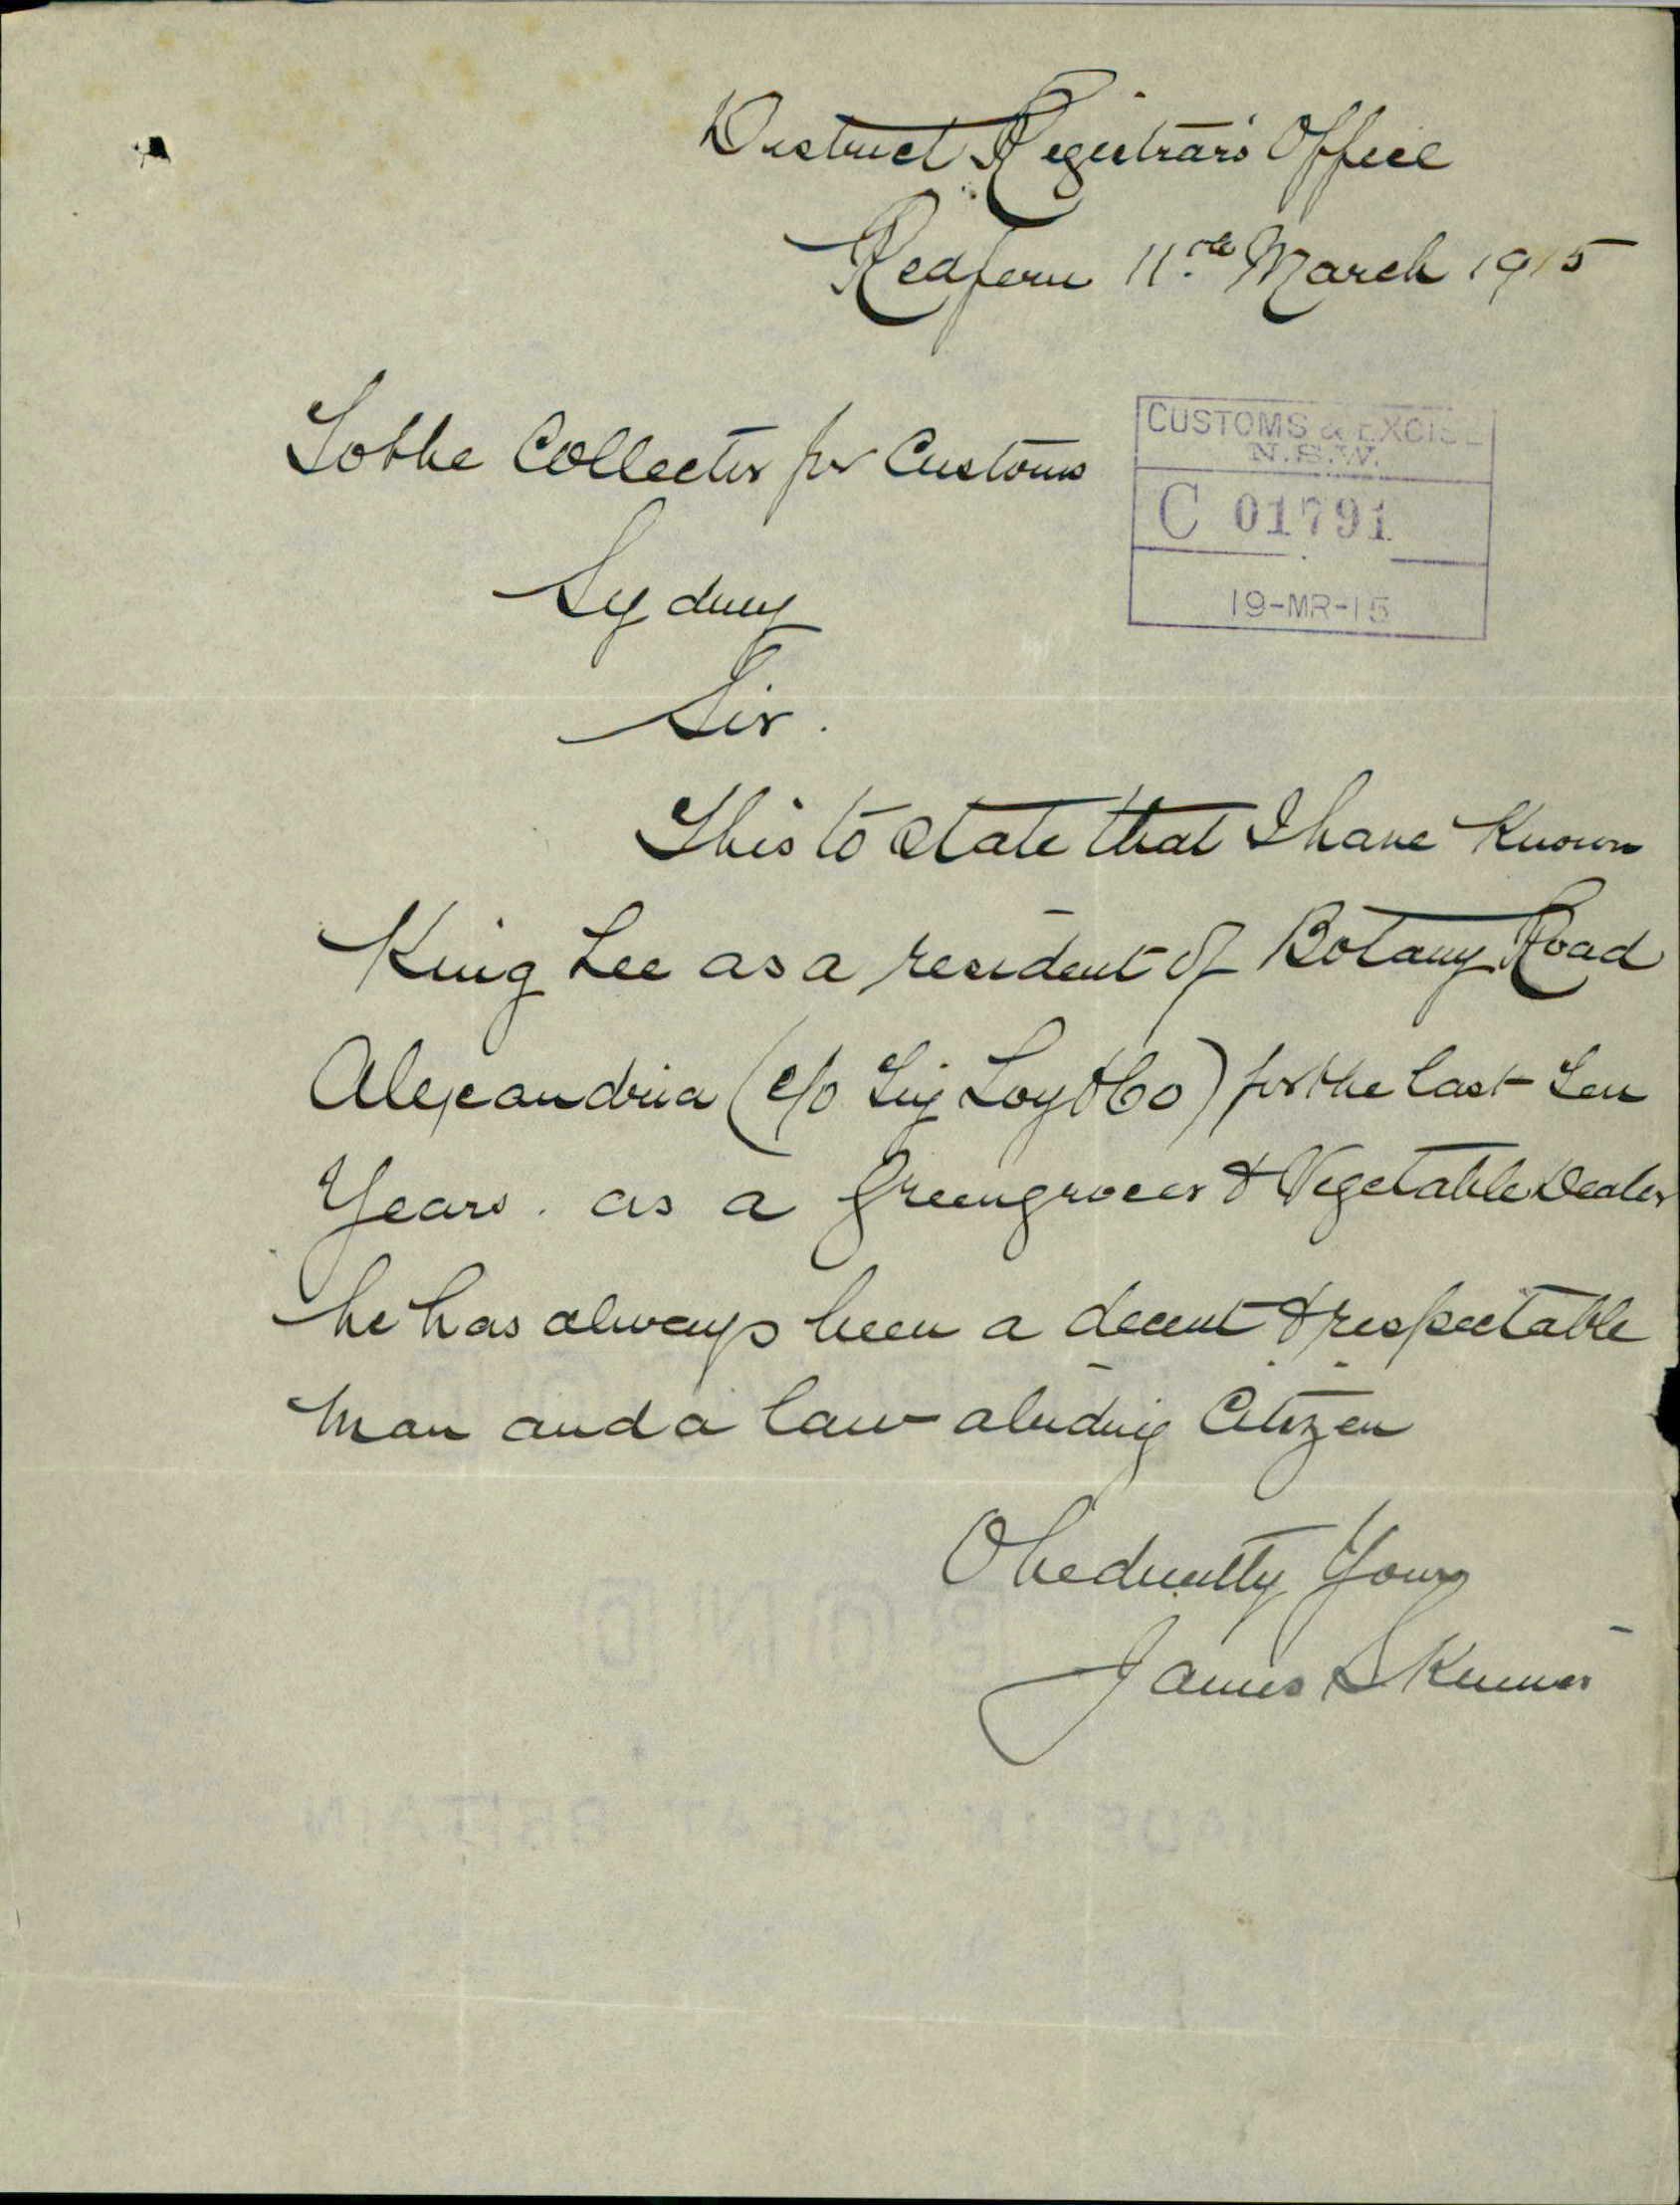 District Registrar's Office
Redfern 11th March 1915
To the Collector for Customs
CUSTOMS & EXCISE
N.S.W.
C 01791
19-MR-15
Sydney
Sir.
This to state that I have Known
King Lee as a resident of Botany Road
Alexandria (c/o Loy & Co) for the last Ten
Years. as a Greengrocer & Vegetable Dealer
he has always been a decent & respectable
man and a law-abiding Citizen
Obediently Yours
James Skinner
BOND
MADE IN GREAT BRITAIN